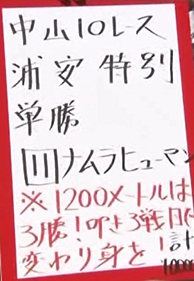 中山10レース
浦安特別
単勝
11ナムラヒューマン
※1200メートルは
3勝!叩き3戦目
変わり身を!計
10000